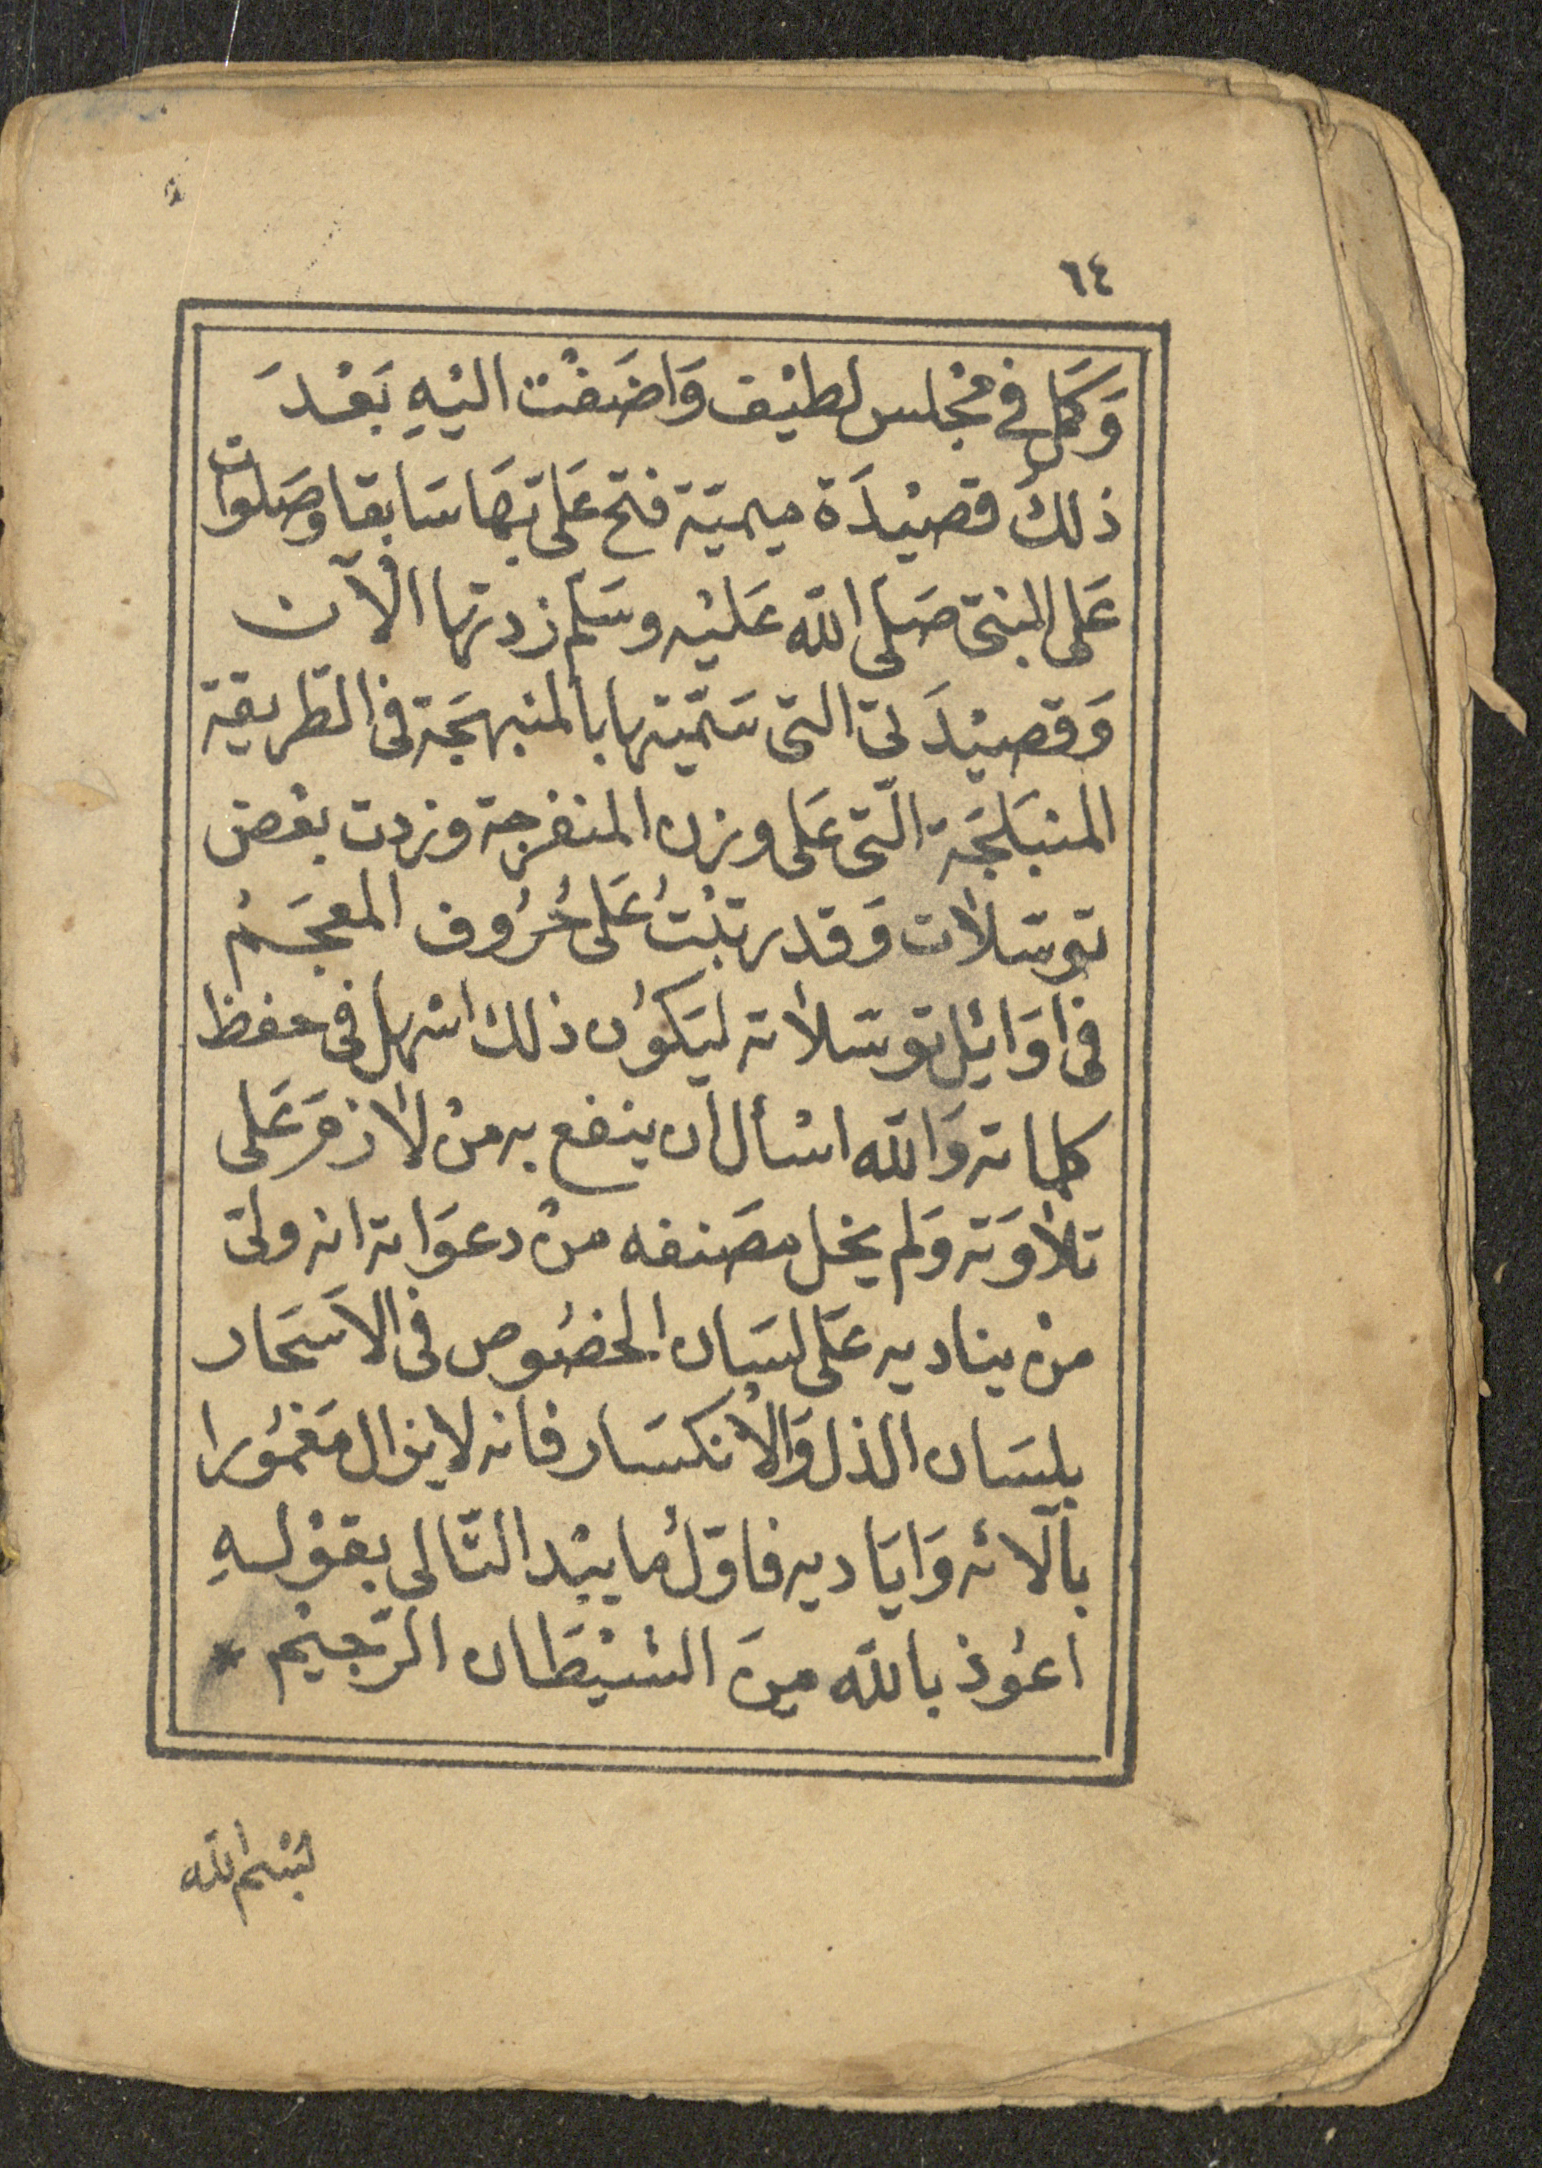 ٦٤
وَكَمَل فى مجْلس لطيْف وَاضَفْت اليْهِ بَعْدَ
ذلك قصيْدَة ميميّة فتح عَلىّ بَهَا سَابقا وصَلوات
عَلى النبىّ صَلى اللّه عَليْه وسَلم زدتها الْآن
وَقصيْدَتى التى سَمّيتها بالمنبهجَة فى الطّريقة
المنبَلجَة الّتى عَلى وزن المنفرجة وزدت بعْض
توسّلات وَقد رتبْتُ عَلى حُرُوف المعجَمْ
فى اوَائِل توسّلاته ليَكون ذلك اسْهل فى حفظ
كلماته وَاللّه اسْأل ان ينفع به منْ لازمَ عَلى
تلاوَته وَلم يخل مصَنفه منْ دعوَاته انه ولىّ
منْ يناديه عَلى لسَان الخضُوص فى الاسَحَار
بلسَان الذل وَالانكسَار فانه لايزال مَغمُورا
بآلائه وَايَاديه فاوّلُ ما يبْدا التّالى بقوْلهِ
اعُوذ باللّه مِنَ الشيْطَان الرّجيْم *
بسْم اللّه